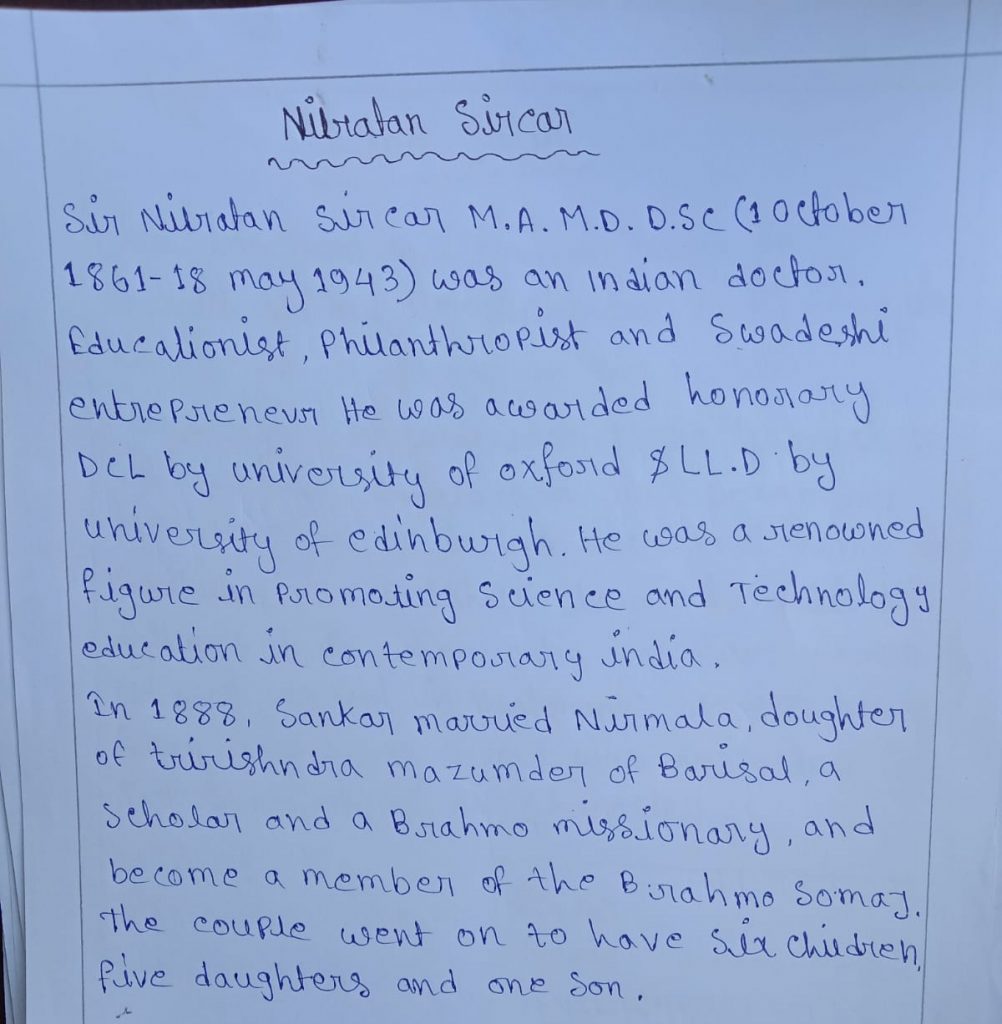 Nilratan Sircar
Sir Nilratan Sircar M.A. M.D. D.Sc (1 October
1861-18 may 1943) was an indian doctor.
Educationist, Philanthropist and Swadeshi
entrepreneur He was awarded honorary
DCL by university of oxford & LL.D by
university of edinburgh. He was a renowned
figure in Promoting Science and Technology
education in contemporary india.
In 1888, Sankar married Nirmala, doughter
of tririshndra mazumder of Barisal, a
Scholar and a Brahmo missionary, and
become a member of the Brahmo Somaj.
The couple went on to have six children,
five daughters and one son.